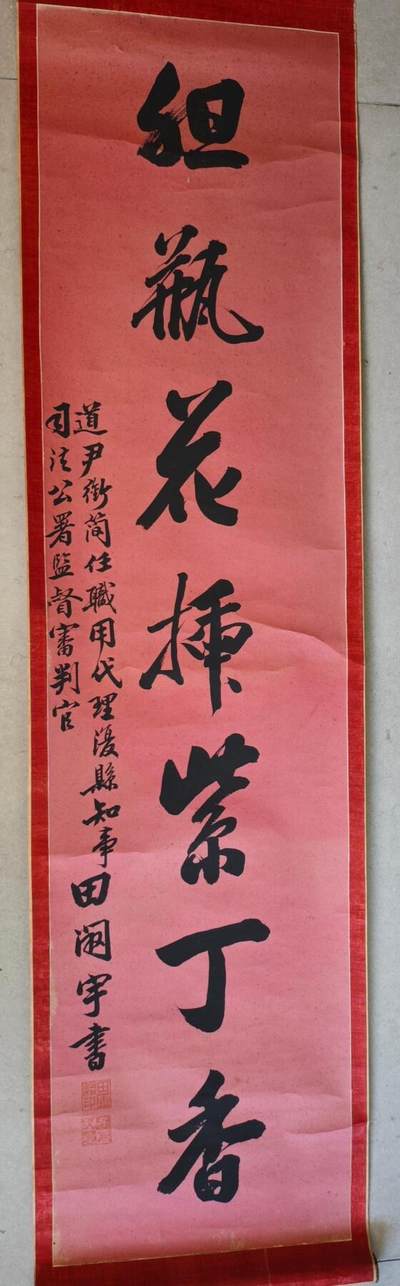 胆瓶花插紫丁香
道尹銜简任職用代理復縣知事
司法公署監督審判官
田 宇書